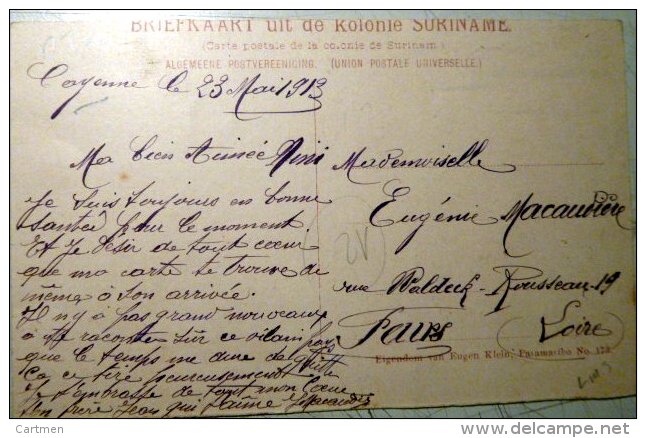 BRIEFKAART uit de Kolonie SURINAME.
(Carte postale de la colonie de Surinam)
ALGEMEENE POSTVEREENIGING. (UNION POSTALE UNIVERSELLE.)
Cayenne le 23 Mai 1913
Ma bien Aimée Nini
Je suis toujours en bonne
santée pour le moment
Et je désir de tout cœur
que ma carte te trouve de
même à son arrivée.
Il n'y a pas grand nouveaux
à te raconter sur ce vilain pays
que le temps me dure de
Ça ce tire heureusement
Je t'embrasse de tout mon Cœur
Ton frère Jean qui t'aime
Mademoiselle
Eugénie Macaudière
rue Waldeck-Rousseau-19
Feurs
(Loire)
Eigendom van Eugen Klein, Paramaribo No. 173.
© Cartmen
delcampe.net